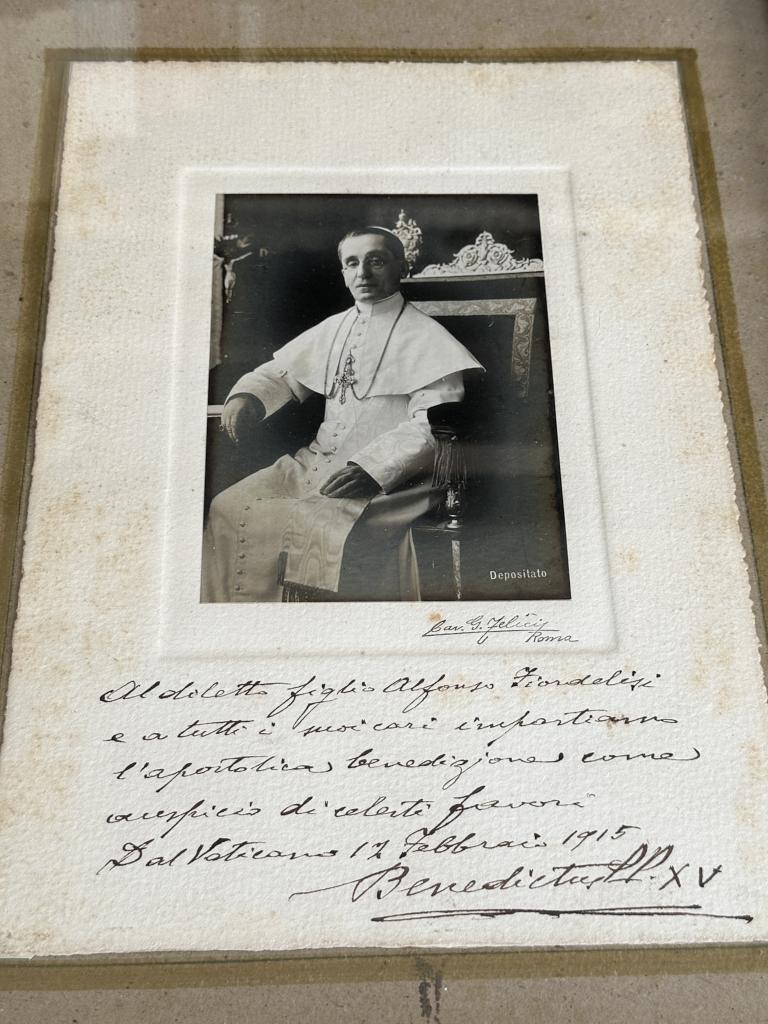 Depositato
Cav. G. Felici
Roma
Al diletto figlio Alfonso Fiordelisi
e a tutti i suoi cari impartiamo
l'apostolica benedizione come
auspicio di celesti favori
Dal Vaticano 12 Febbraio 1915
Benedictus PP. XV